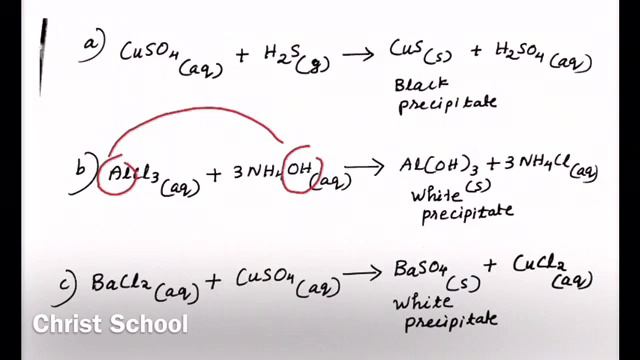 a) CuSO4 (aq) + H2S(g) → CuS(s) + H2SO4(aq)
Black
precipitate
b) AlCl3(aq) + 3NH4OH(aq) → Al(OH)3 (s) + 3NH4Cl(aq)
White
precipitate
c) BaCl2(aq) + CuSO4(aq) → BaSO4(s) + CuCl2(aq)
White
precipitate
Christ School